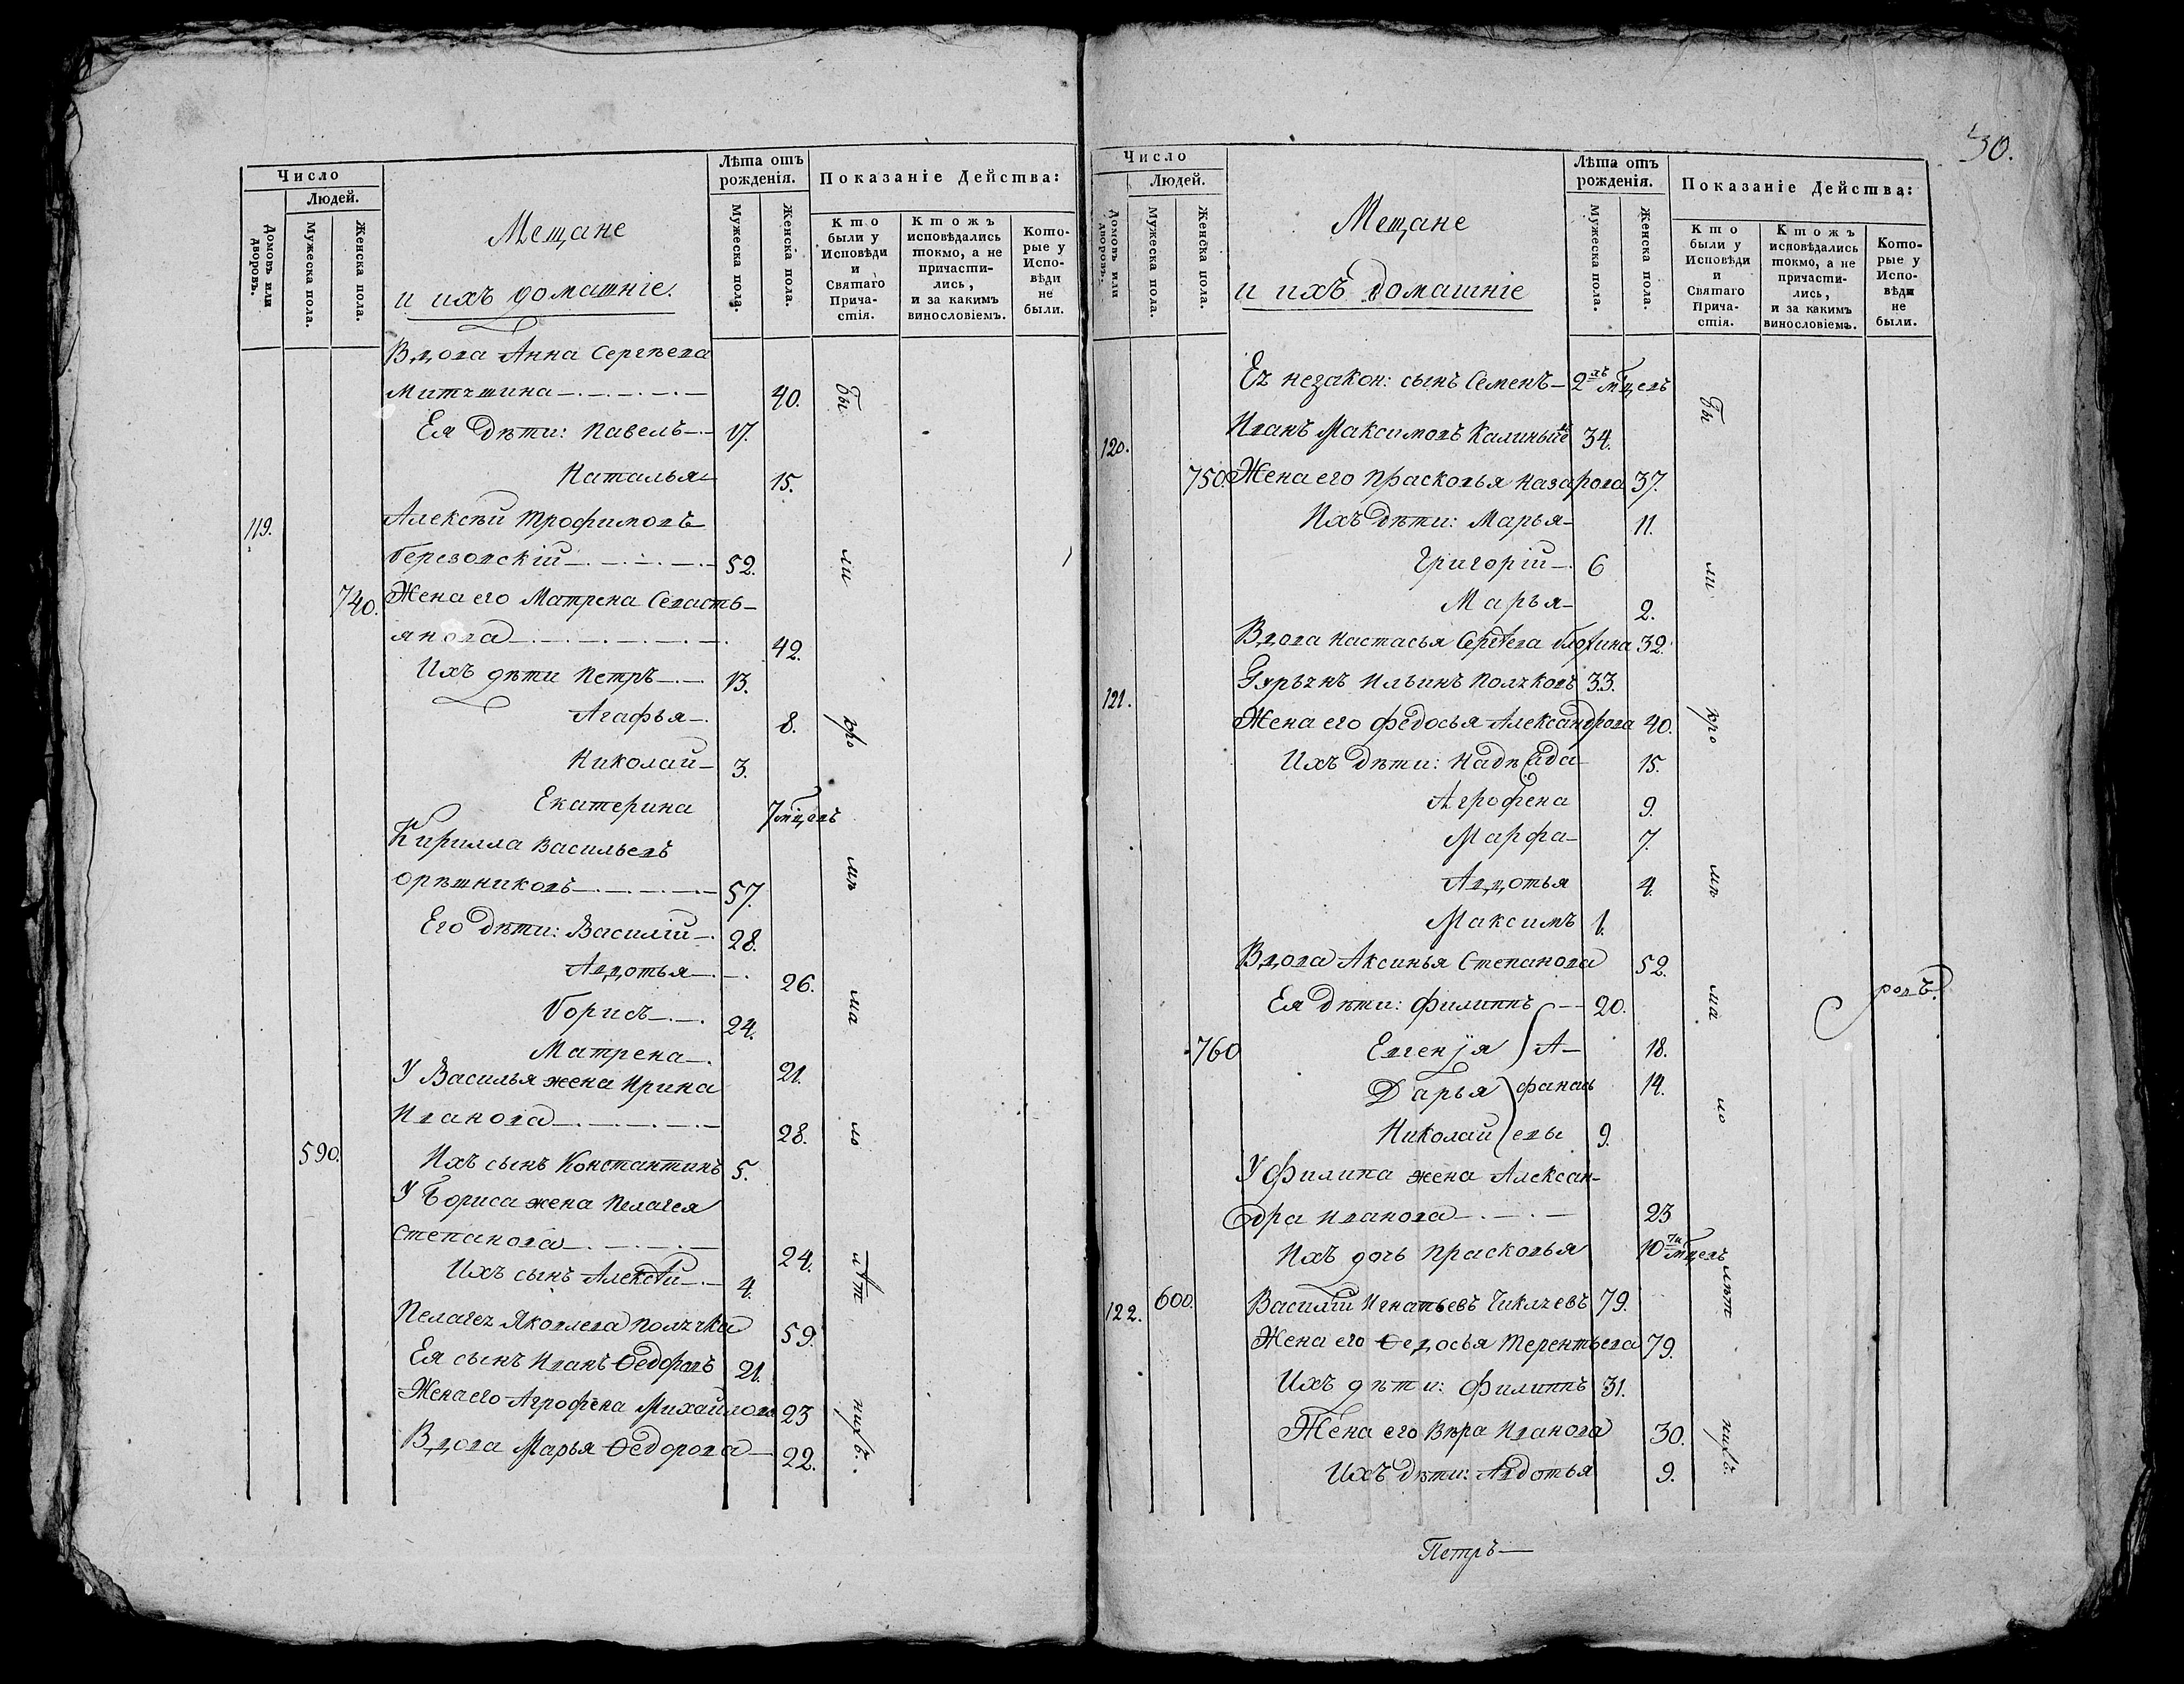 30.
Число
Людей.
Домовъ или дворовъ.
Мужеска пола.
Женска пола.
Мещане
и ихъ домашніе.
Лѣта отъ рожденія.
Мужеска пола.
Женска пола.
Показаніе Действа:
Кто были у Исповѣди и Святаго Прича-стія.
Ктожъ исповѣдались токмо, а не причасти-лись, и за какимъ винословіемъ.
Кото-рые у Испо-вѣди не были.
Вдова Анна Сергѣева
Митчшина 40.
Ея дѣти: Павелъ 17.
Наталья 15.
119. Алексѣй Трофимовъ
Березовскій 52.
740. Жена его Матрена Севасть-
янова 42.
Ихъ дѣти Петръ 13.
Агафья 8.
Николай 3.
Екатерина 7 мцовъ
Кирилла Васильевъ
Орѣшниковъ 57.
Его дѣти: Василій 28.
Авдотья 26.
Борисъ 24.
Матрена 21.
У Василья жена Ирина
Иванова 28.
590. Ихъ сынъ Константинъ 5.
У Бориса жена Пелагея
Степанова 24.
Ихъ сынъ Алексѣй 4.
Пелагея Яковлева 59.
Ея сынъ Иванъ Ѳедоровъ 21.
Жена его Агрофена Михайлова 23
Вдова Марья Ѳедорова 22.
бы
ли
кро
мѣ
ма
ло
лѣт
нихъ.
Число
Людей.
Домовъ или дворовъ.
Мужеска пола.
Женска пола.
Мещане
и ихъ домашніе
Лѣта отъ рожденія.
Мужеска пола.
Женска пола.
Показаніе Действа:
Кто были у Исповѣди и Святаго Прича-стія.
Ктожъ исповѣдались токмо, а не причасти-лись, и за какимъ винословіемъ.
Кото-рые у Испо-вѣди не были.
Ея незакон: сынъ Семенъ 2хъ мцевъ
120. Иванъ Максимовъ 34.
750. Жена его Прасковья Назарова 37.
Ихъ дѣти: Марья 11.
Григорій 6
Марья 2.
Вдова Настасья 32.
121. Ильинъ 33.
Жена его Федосья Александрова 40.
Ихъ дѣти: Надежда 15.
Агрофена 9.
Марфа 7.
Авдотья 4.
Максимъ 1.
Вдова Аксинья Степанова 52.
Ея дѣти: Филиппъ 20.
760 Евгенія А- 18.
Дарья фанась 14.
Николай евы 9.
У Филипа жена Алексан-
дра Иванова 23
Ихъ дочь Прасковья 10ти мцевъ
122. 600. Василій Игнатьевъ Чикачевъ 79.
Жена его Ѳедосья Терентьева 79.
Ихъ дѣти: Филиппъ 31.
Жена его Вѣра Иванова 30.
Ихъ дѣти: Авдотья 9.
бы
ли
кро
мѣ
ма
ло
лѣт
нихъ.
Петръ